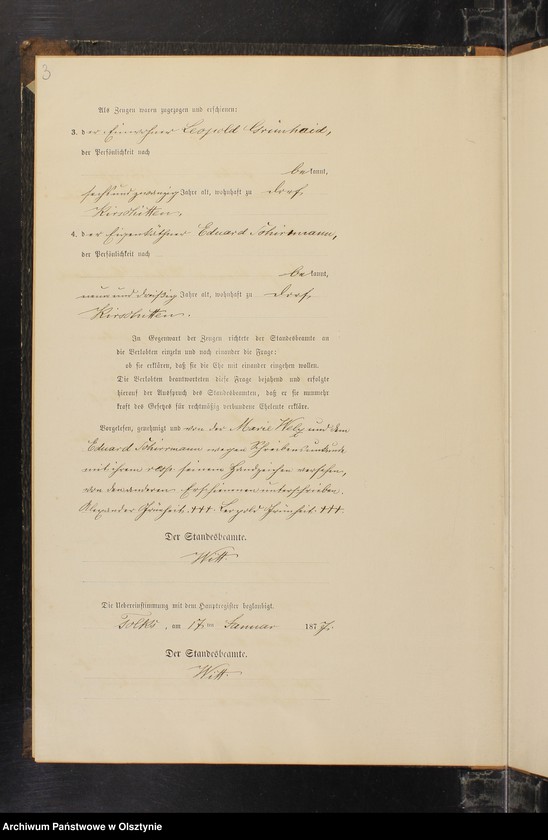 3
Als Zeugen waren zugezogen und erschienen:
3. der Einwohner Leopold Grünhaid,
der Persönlichkeit nach
bekannt,
sechsundzwanzig Jahre alt, wohnhaft zu Dorf
Kirschitten.
4. der Eigenkäthner Eduard Schirrmann,
der Persönlichkeit nach
bekannt,
neun und dreißig Jahre alt, wohnhaft zu Dorf
Kirschitten.
In Gegenwart der Zeugen richtete der Standesbeamte an
die Verlobten einzeln und nach einander die Frage:
ob sie erklären, daß sie die Ehe mit einander eingehen wollen.
Die Verlobten beantworteten diese Frage bejahend und erfolgte
hierauf der Ausspruch des Standesbeamten, daß er sie nunmehr
kraft des Gesetzes für rechtmäßig verbundene Eheleute erkläre.
Vorgelesen, genehmigt und von der Marie und dem
Eduard Schirrmann wegen Schreibensunkunde
mit ihrem resp. seinem Handzeichen versehen,
von den anderen Erschienenen unterschrieben.
Alexander Grünheit. +++. Leopold Grünheit. +++.
Der Standesbeamte.
Witt.
Die Uebereinstimmung mit dem Hauptregister beglaubigt.
Tolks, am 17ten Januar 1877.
Der Standesbeamte.
Witt.
Archiwum Państwowe w Olsztynie